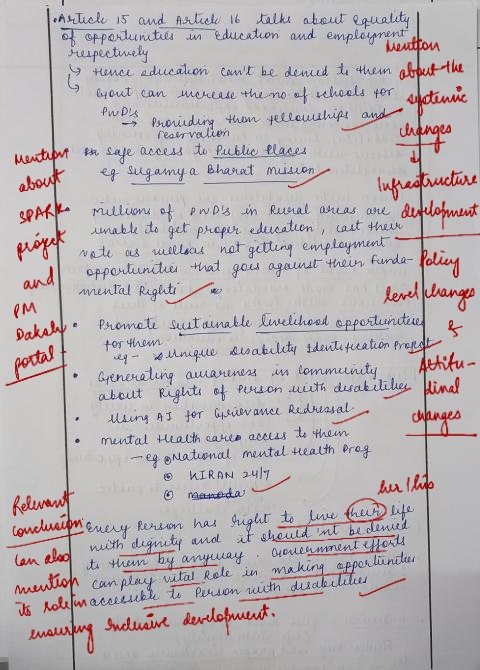 • Article 15 and Article 16 talks about Equality
of opportunities in Education and employment
respectively
↳ Hence education can't be denied to them
↳ Govt can increase the no of schools for
PwD's
→ Providing them fellowships and
reservation
Safe access to Public Places
eg Sugamya Bharat mission
• Millions of PwD's in Rural areas are
unable to get proper education, cast their
vote as well as not getting employment
opportunities that goes against their funda-
mental Rights
• Promote Sustainable livelihood opportunities
for them
eg - Unique Disability Identification Project
• Generating awareness in Community
about Rights of Person with disabilities
• Using AI for Grievance Redressal
• Mental Health care access to them
- eg National mental Health Prog
KIRAN 24/7
manoda
Every Person has Right to live their life
with dignity and it should'nt be denied
to them by anyway. Government efforts
can play vital Role in making opportunities
accessible to Person with disabilities
Mention
about the
systemic
changes
↓
Infrastructure
development
Policy
level changes
&
Attitu-
dinal
changes
Mention
about
SPARK
project
and
PM
Daksh
portal -
her/his
Relevant
Conclusion
Can also
mention
its role in
ensuring Inclusive development.